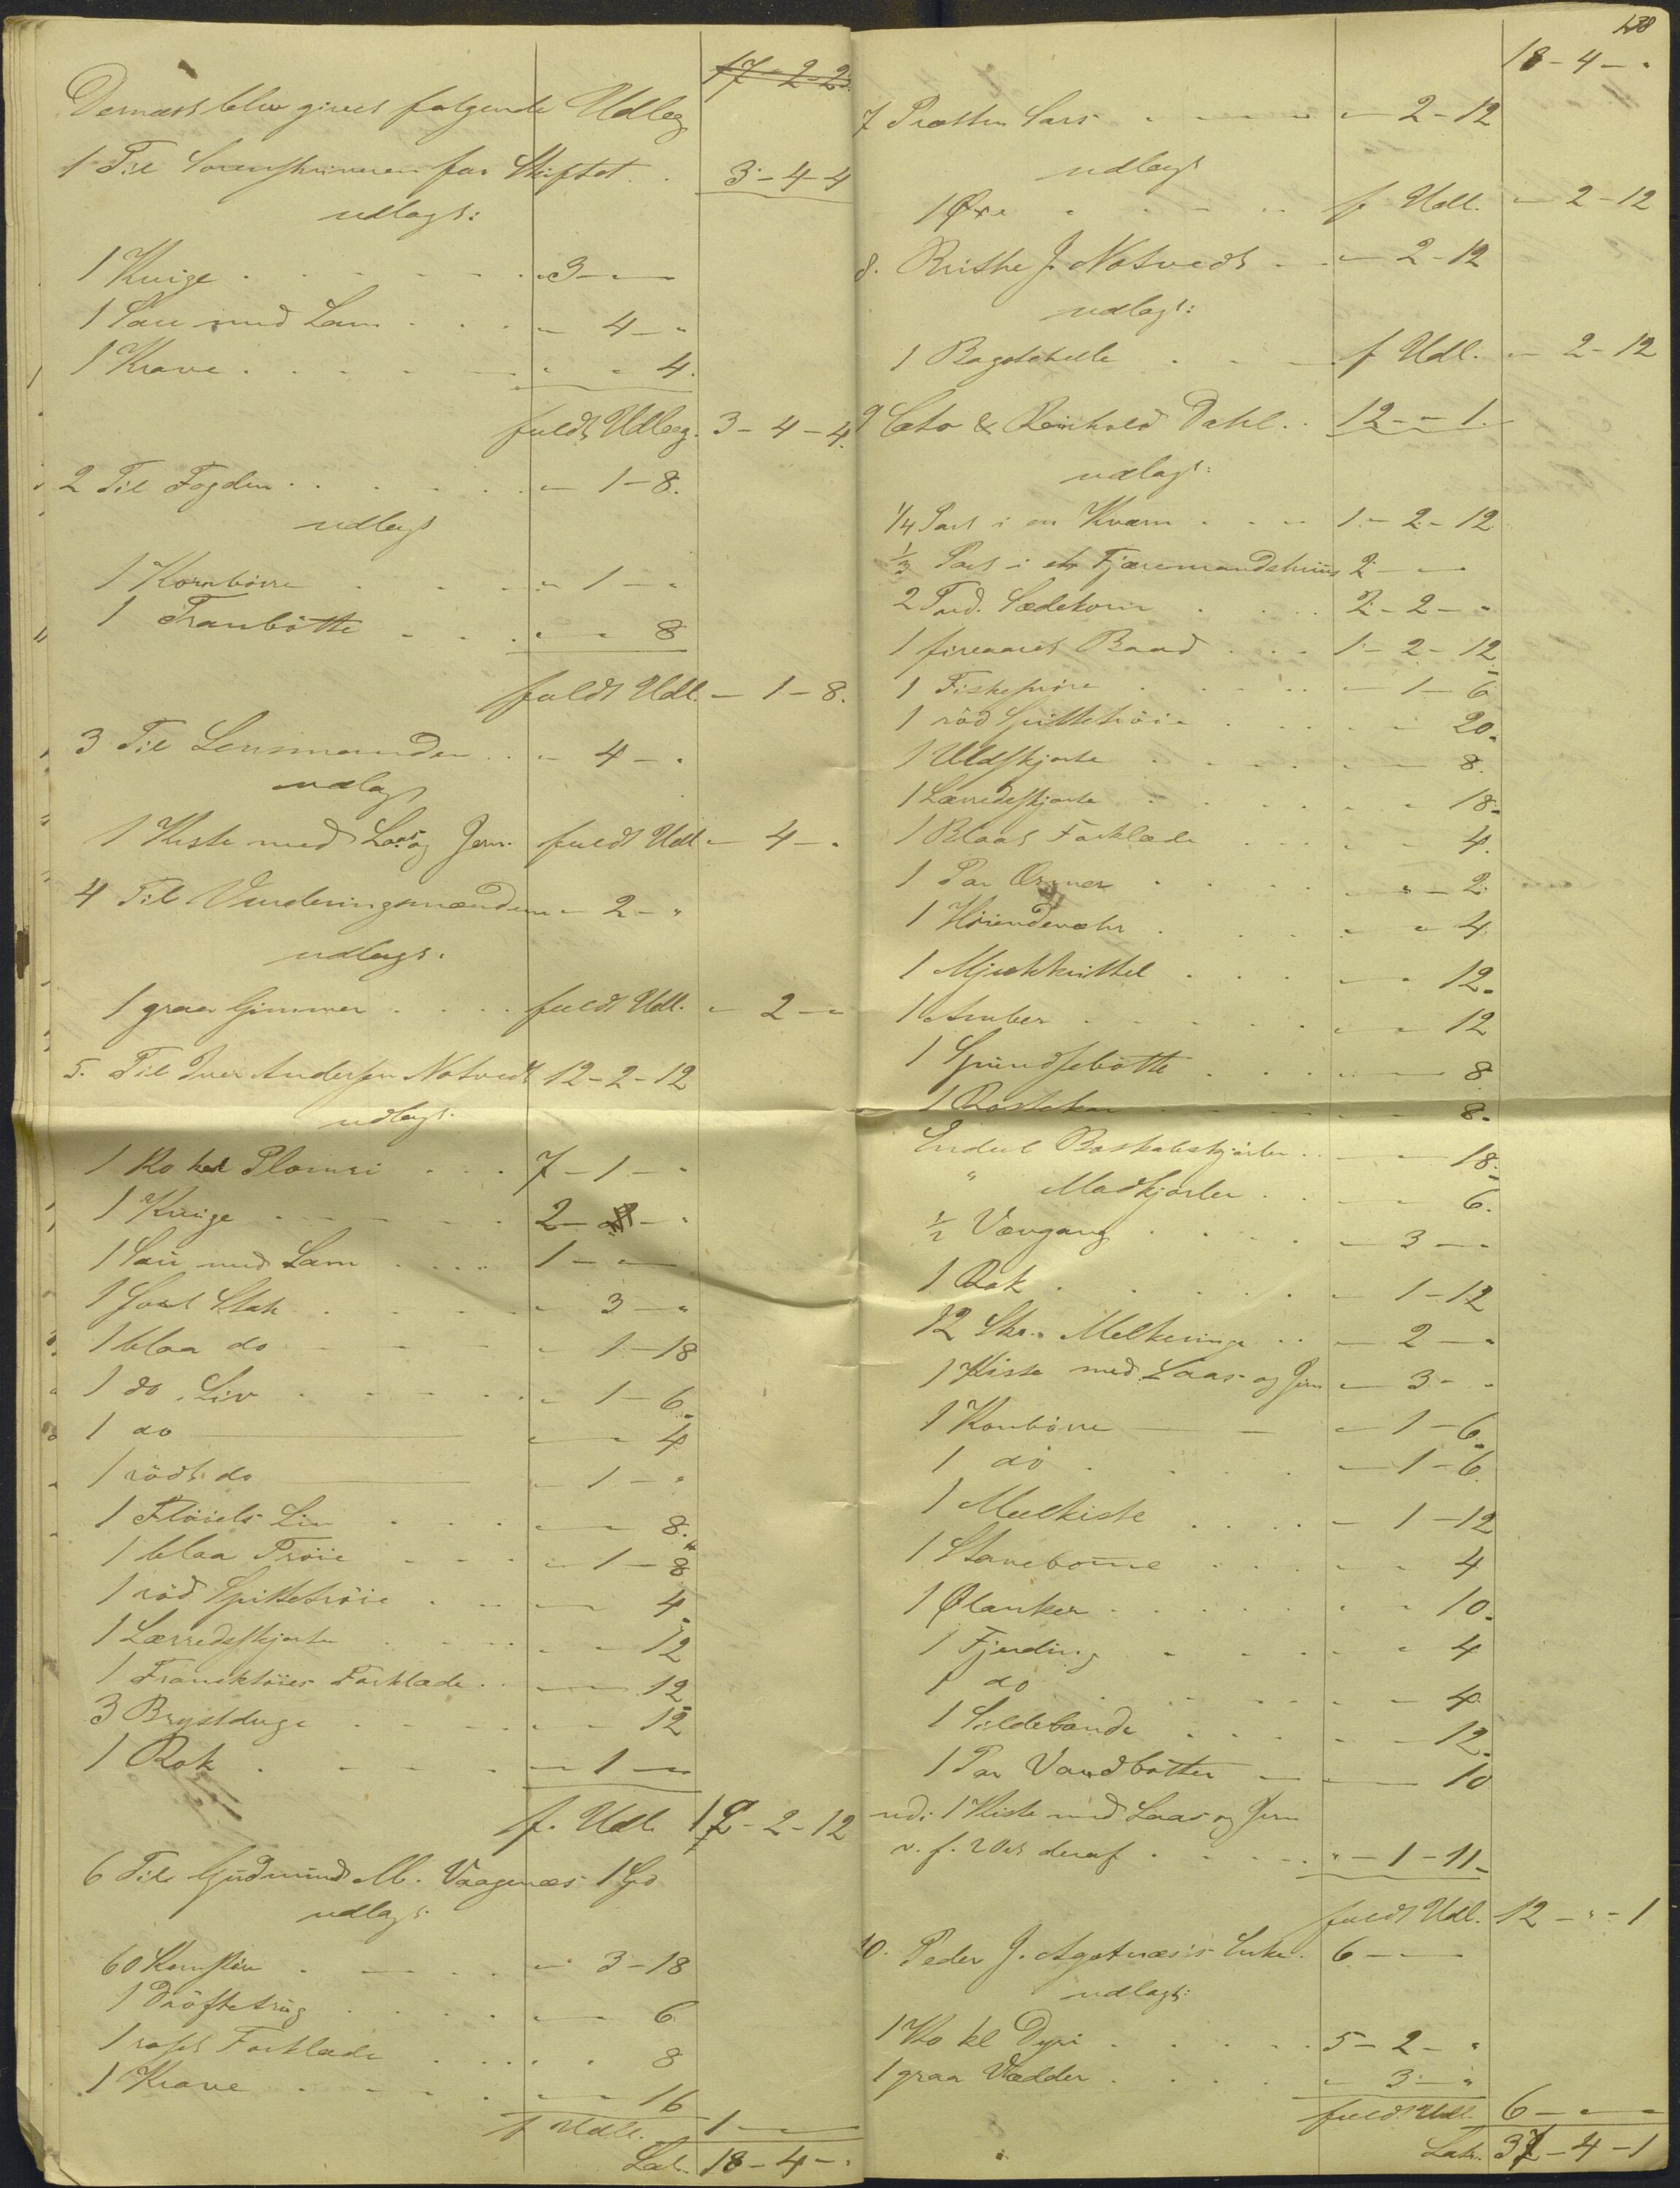 17-2-2
Dernæst blev givet følgende Udlæg
1 Til Sorenskriveren for Skiftet . . 3-4-4
udlagt:
1 Kvige . . . 3 - -
1 Sau med Lam . . . - 4 - "
1 Krave . . . " - 4.
fuldt Udlæg. 3-4-4.
2 Til Fogden . . . - 1-8.
udlagt
1 Kornbörre . . . - 1 - "
1 Tranbötte . . . " - 8
fuldt Udl. - 1-8.
3 Til Lensmanden . . - 4 - "
udlagt
1 Kiste med Laas og Jern. fuldt Udl - 4 - "
4 Til Vurderingsmændene - 2 - "
udlagt.
1 graa Gimmer . . . fuldt Udl. - 2 - "
5. Til Iver Andersen Notvedt 12-2-12
udlagt.
1 Ko kal Plomri . . . 7-1-"
1 Kvige . . . 2 - " - "
1 Sau med Lam . . . 1 - " -
1 Sort Stak . . . - 3 - "
1 blaa do . . . - 1-18
1 do Liv . . . - 1-6.
1 do - - 4
1 rödt do - 1 - "
1 Flöiels Liv . . . - - 8.
1 blaa Tröie . . . - 1-8
1 röd Spittetröie . . . - - 4
1 Lærredsskjorte . . . - - 12
1 Fransktöies Forklæde . . - - 12
3 Brystduge . . . - - 12
1 Rok . . . - 1 - "
f. Udl. 12-2-12
6 Til Gudmund M. Vaagenæs 1 Spd
udlagt.
60 . . . - 3-18
1 Dröftetrug . . . - - 6
1 Forklæde . . . " - 8
1 Krave . . . - - 16
f Udl. 1 - -
Lat. 18-4-"
138
18-4-"
7 Præsten Sars . . . - 2-12
udlagt
1 Öxe . . . f Udl. - 2-12
8. Brithe J. Notvedt . . - 2-12
udlagt:
1 Bagstehelle . . . f Udl. - 2-12
9 Cato & Reinhold Dahl . . 12 - " 1.
udlagt:
1/4 Part i en Kværn . . . 1-2-12
1/3 Part i et Fjæremandshuus 2 - -
2 Tnd. Sædekorn . . . 2-2-"
1 fireaaret Baad . . . 1-2-12
1 . . . - 1-6
1 röd Spittetröie . . . - - 20.
1 Uldskjorte . . . - - 8.
1 Lærredsskjorte . . . - - 18.
1 Blaat Forklæde . . . - - 4.
1 Par Ærmer . . . " - 2.
1 Höiendevahr . . . - - 4.
1 . . . - - 12.
1 Amber . . . - - 12
1 Spundsebötte . . . - - 8
1 Rostekar . . . - - 8.
Endeel Boskabskjörler . . - - 18.
" Madkjörler . . - - 6.
1/2 Vævgang . . . - 3 - "
1 Rok . . . - 1-12
12 Stkr. Melkeringe . . - 2 - "
1 Kiste med Laas og Jern - 3 - "
1 Kornbörre - 1-6.
1 do . . . - 1-6.
1 Meelkiste . . . - 1-12
1 . . . - - 4
1 Ölanker . . . - - 10.
1 Fjerding . . . - - 4
1 do . . . - - 4.
1 Sildetönde . . . - - 12.
1 Par Vandbötter - - 10
udi 1 Kiste med Laas og Jern
v. f. 2 Ort deraf . . . " - 1-11.
fuldt Udl. 12 - " - 1
10. Peder J. Agotnæs's Enke . 6 - -
udlagt:
1 Ko kl Dyri . . . 5-2-"
1 graa Vædder . . . - 3 - "
fuldt Udl. 6 - " -
Lat. 37-4-1